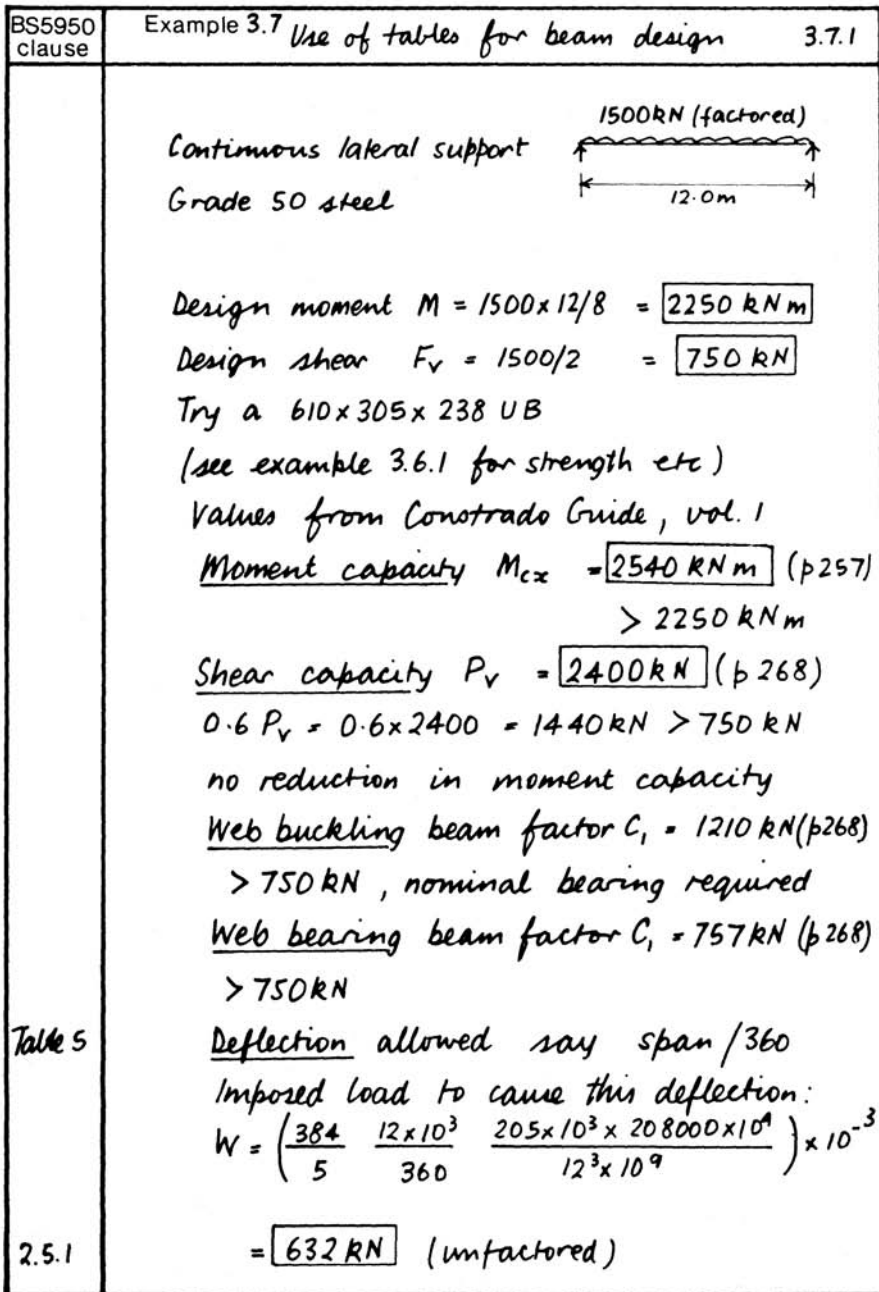 BS5950 clause
Example 3.7 Use of tables for beam design 3.7.1
1500kN (factored)
Continuous lateral support
Grade 50 steel
12.0m
Design moment M = 1500x12/8 = 2250 kNm
Design shear Fv = 1500/2 = 750 kN
Try a 610x305x238 UB
(see example 3.6.1 for strength etc)
Values from Constrado Guide, vol. 1
Moment capacity Mcx = 2540 kNm (p257)
> 2250 kNm
Shear capacity Pv = 2400kN (p 268)
0.6 Pv = 0.6x2400 = 1440kN > 750 kN
no reduction in moment capacity
Web buckling beam factor C1 = 1210 kN(p268)
> 750 kN , nominal bearing required
Web bearing beam factor C1 = 757kN (p268)
> 750kN
Table 5 Deflection allowed say span/360
Imposed load to cause this deflection:
W = (384/5 12x10³/360 205x10³ x 208000x10⁴/12³x10⁹) x 10⁻³
2.5.1 = 632 kN (unfactored)